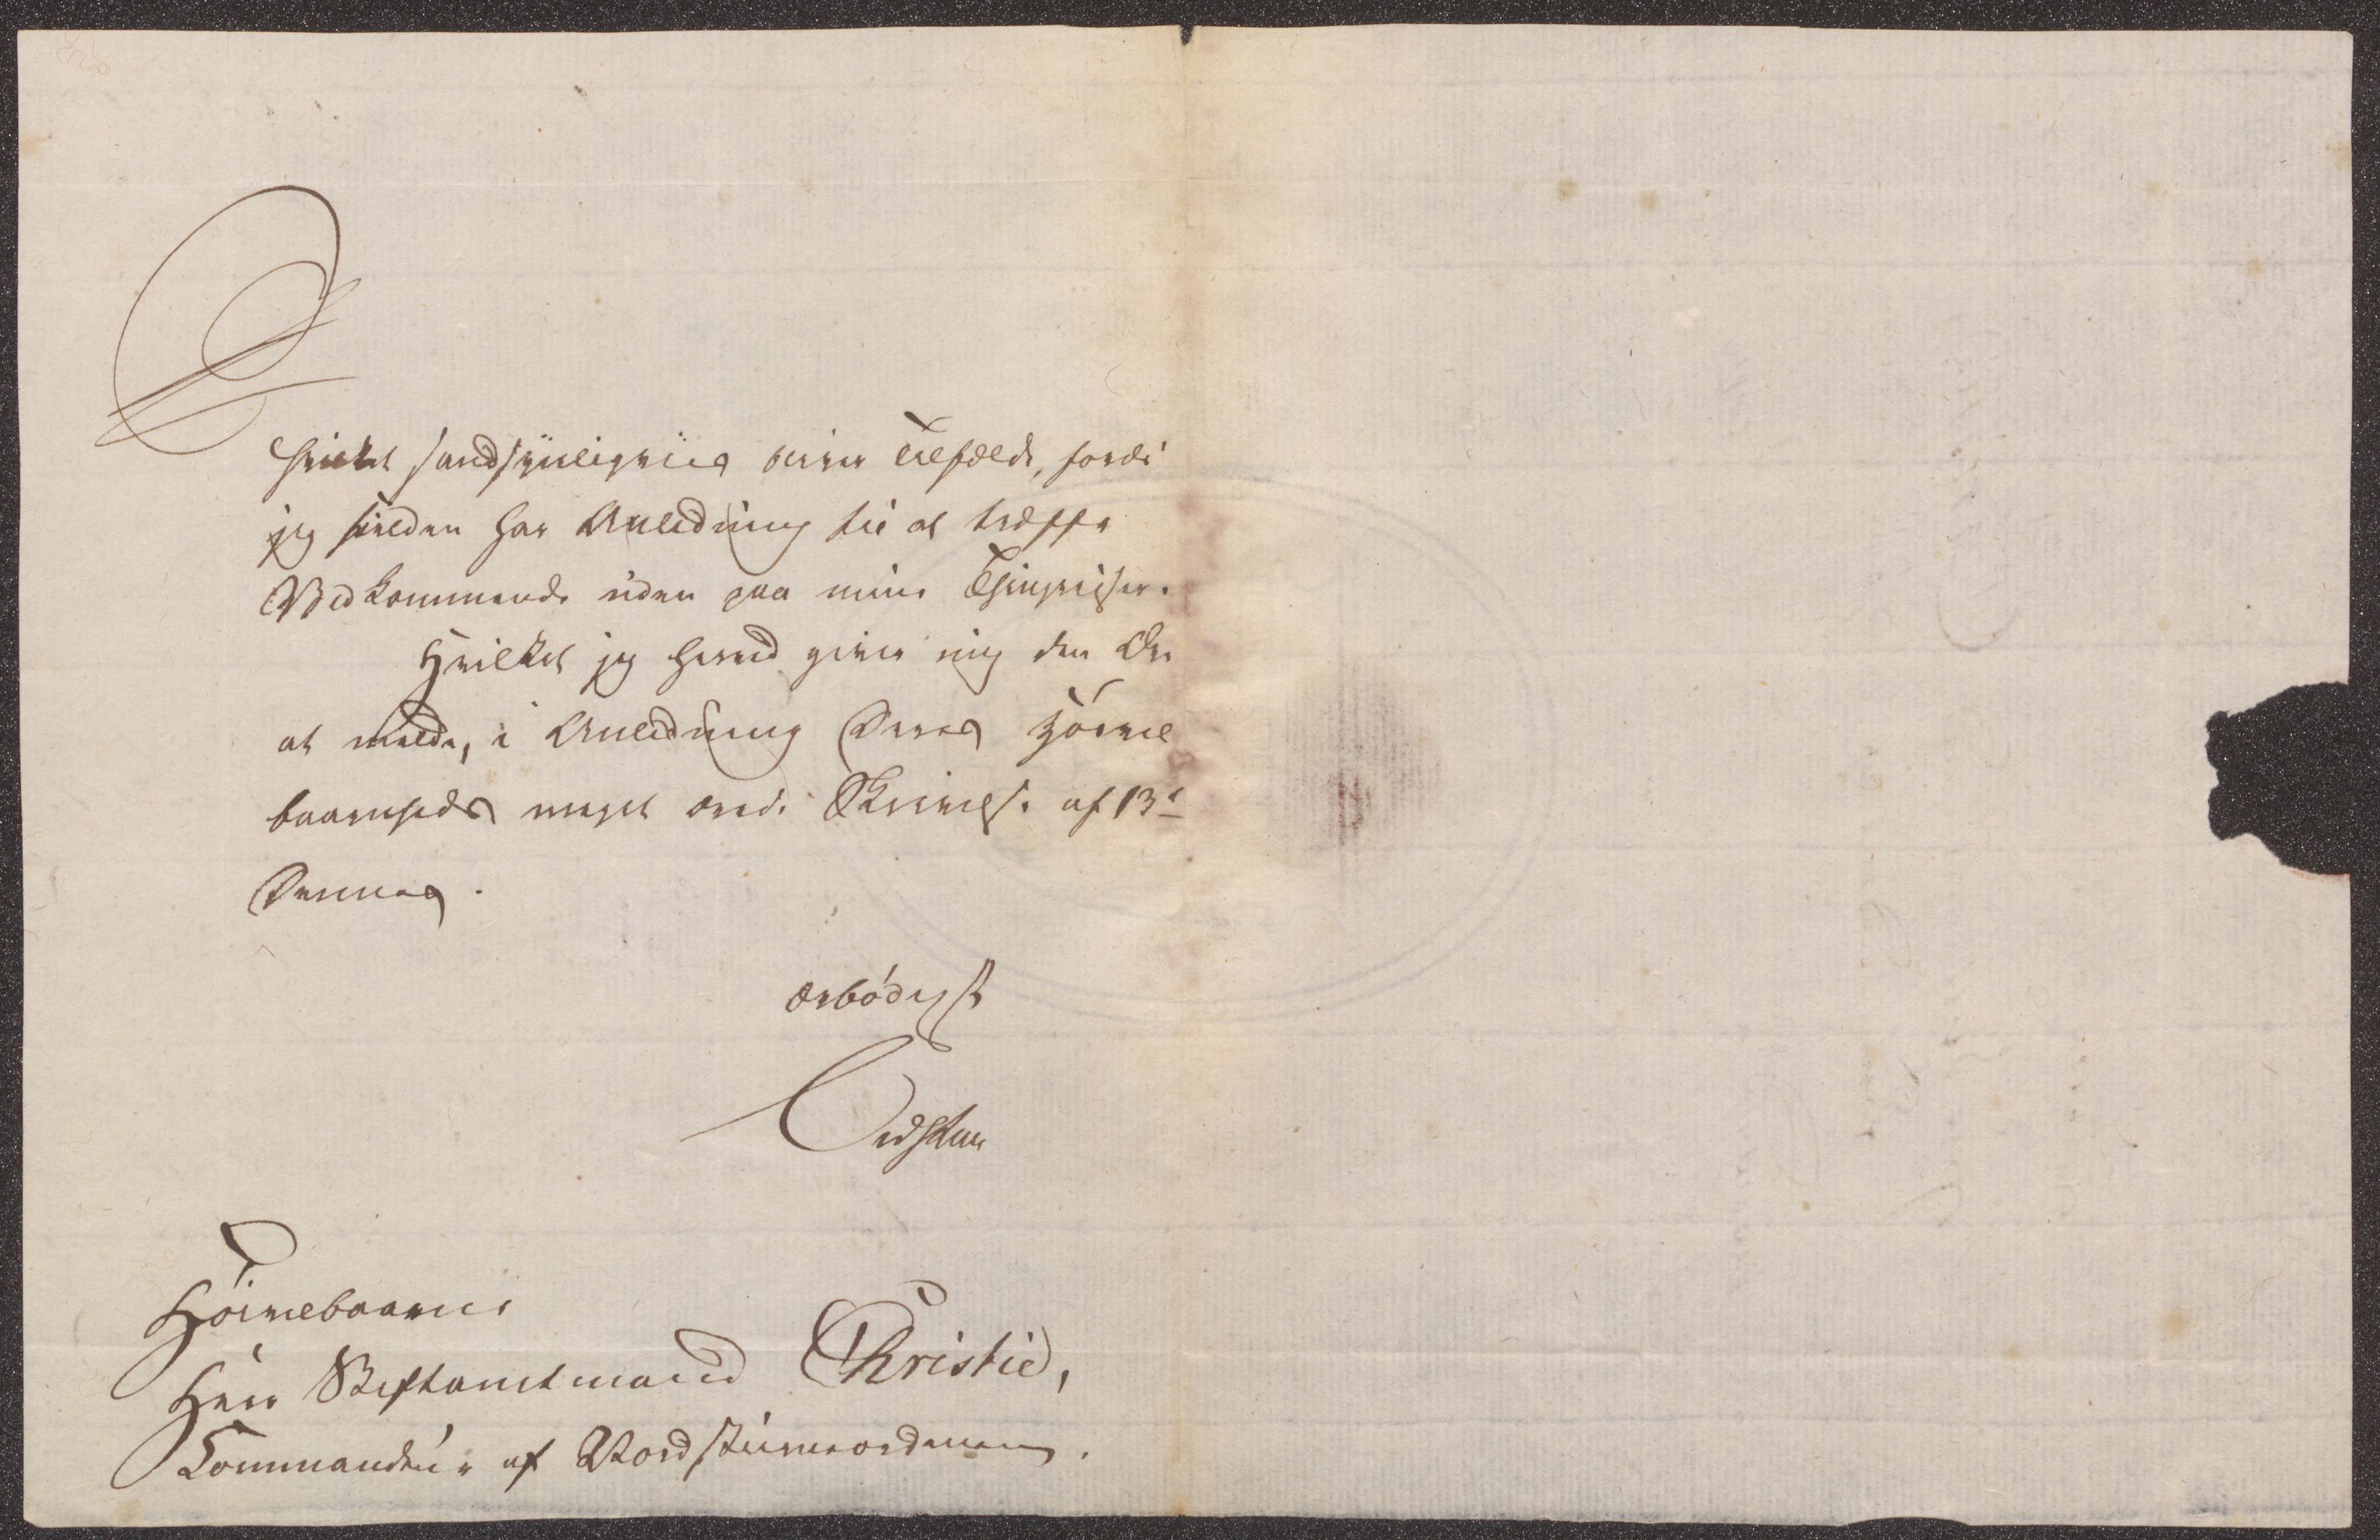 hvilket sandsynligviis bliver Tilfældet, fordi
jeg sielden har Anledning til at træffe
Vedkommende uden paa mine Thingreiser.
Hvilket jeg herved giver mig den Ære
at melde, i Anledning Deres Höivel
baarenheds meget ærede Skrivelse af 13de
Dennes.
ærbödigst
Höivelbaarne
Herr Stiftamtmand Christie,
Kommandeur af Nordstierneordenen.